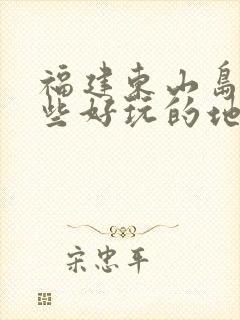 福建东山岛
些好玩的地
宋忠平